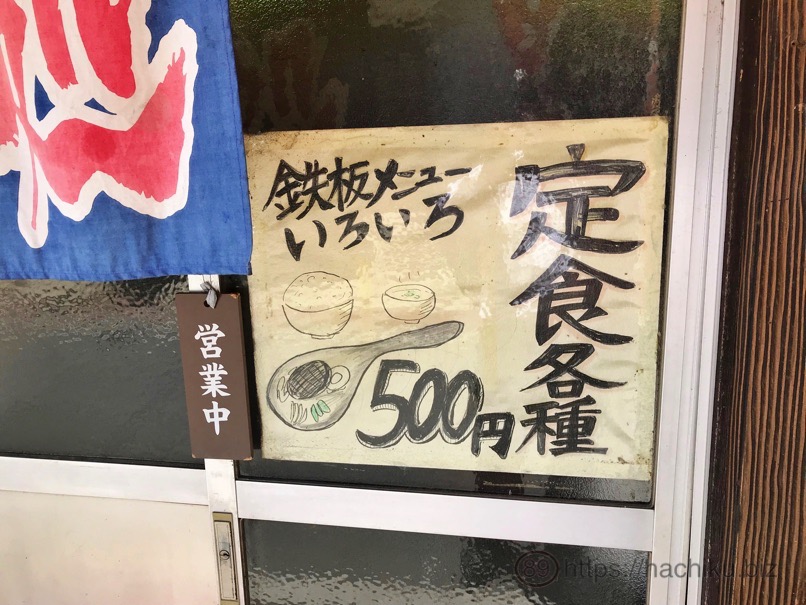 定食各種
鉄板メニュー
いろいろ
500円
営業中
89 https://hachiku.biz